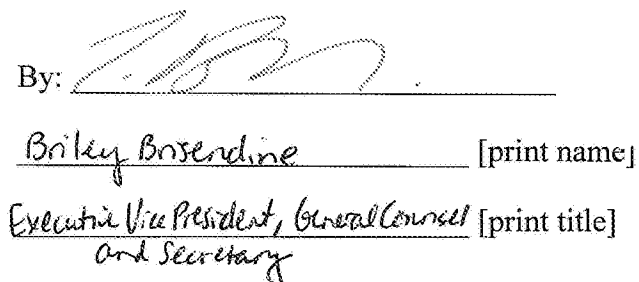 By:
Briley Brisendine [print name]
Executive Vice President, General Counsel [print title]
and Secretary